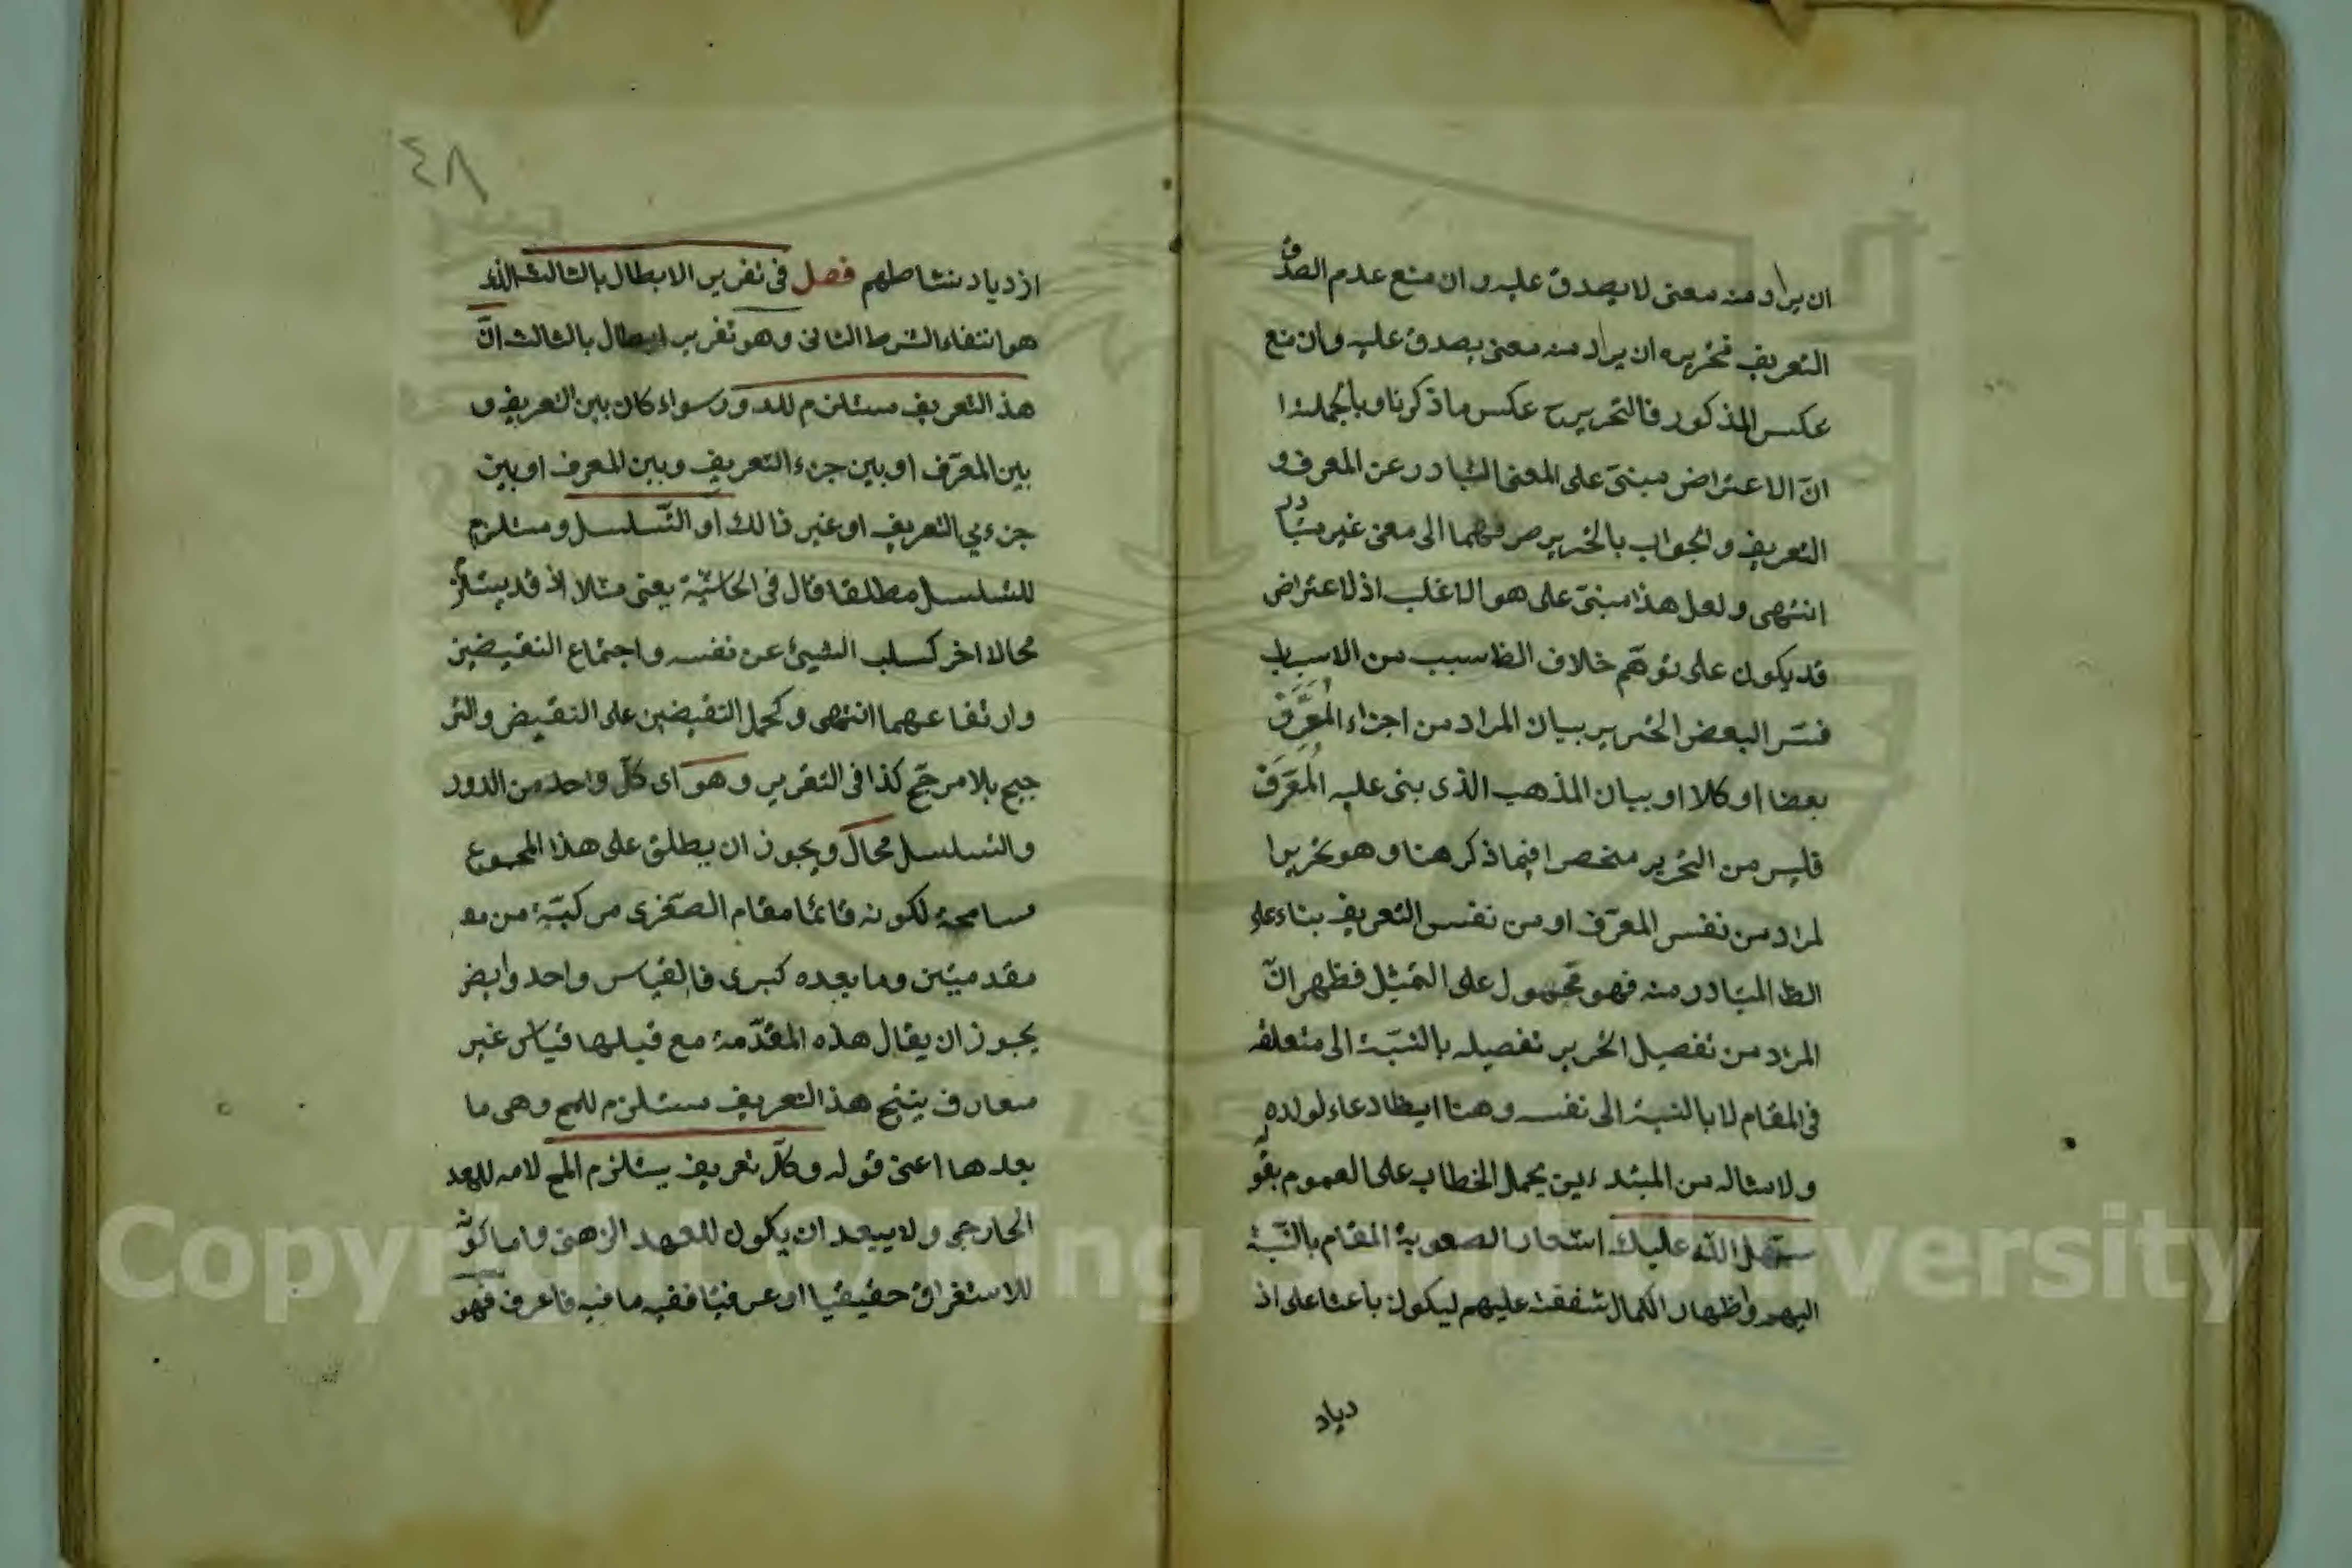 ان يراد منه معنى لا يصدق عليه وان منع عدم الصدق
التعريف فتحريره ان يراد منه معنى يصدق عليه وان منع
عكس المذكور فالتحرير ح عكس ما ذكرنا وبالجملة ا
انّ الاعتراض مبنىّ على المعنى المتبادر عن المعرف و
التعريف والجواب بالتحرير صرفهما الى معنى غير متبادر
انتهى ولعل هذا مبنىّ على هو الاغلب اذ لاعتراض
قد يكون على توهّم خلاف الظ سبب من الاسباب
فسّر البعض التحرير ببيان المراد من اجزاء المُعَرَّف
بعضا او كلا او بيان المذهب الذى بنى عليه المُعَرَّف
فليس من التحرير منحصرا فيما ذكر هنا وهو تحرير ا
لمراد من نفس المعرّف او من نفس التعريف بناء على
الظ المتبادر منه فهو محمول على التمثيل فظهر انّ
المراد من تفصيل التحرير تفصيله بالنسبة الى متعلقه
فى المقام لا بالنسبة الى نفسه وهنا ايظا دعاء لولده
ولامثاله من المبتدءين بحمل الخطاب على العموم بقوله
سهّل الله عليك اشعارا لصعوبة المقام بالنسبة
اليهم واظهار الكمال شفقته عليهم ليكون باعثا على از
دياد
٤٨
ازدياد نشاطهم فصل فى تقرير الابطال بالثالث الذى
هو انتفاء الشرط الثانى وهو تقرير ابطال بالثالث انّ
هذ التعريف مستلزم للدور سواء كان بين التعريف و
بين المعرّف او بين جزء التعريف وبين المعرف او بين
جزءي التعريف او غير ذالك او التّسلسل ومستلزم
للتسلسل مطلقا قال فى الحاشيّة يعنى مثلا اذ قد يستلزم
محالا اخر كسلب الشيئ عن نفسه واجتماع النقيضين
وارتفاعهما انتهى وكحمل النقيضين على النقيض والتر
جيح بلا مرجّح كذا فى التقرير وهو اى كلّ واحد من الدور
والتسلسل محال ويجوز ان يطلق على هذا المجموع
مسامحة لكونه قائما مقام الصّغرى مركبّة من مـ
مقدمتين وما بعده كبرى فالقياس واحد وايض
يجوز ان يقال هذه المقدّمة مع قبلها قياس غير
متعارف ينتج هذ التعريف مستلزم للمح وهى ما
بعدها اعنى قوله وكلّ تعريف يستلزم المح لامه للعهد
الخارجى ولا يبعد ان يكون للعهد الزهنى واما كونه
للاستغراق حقيقيا او عرفيّا ففيه ما فيه فاعرف فهو
Copyright © King Saud University